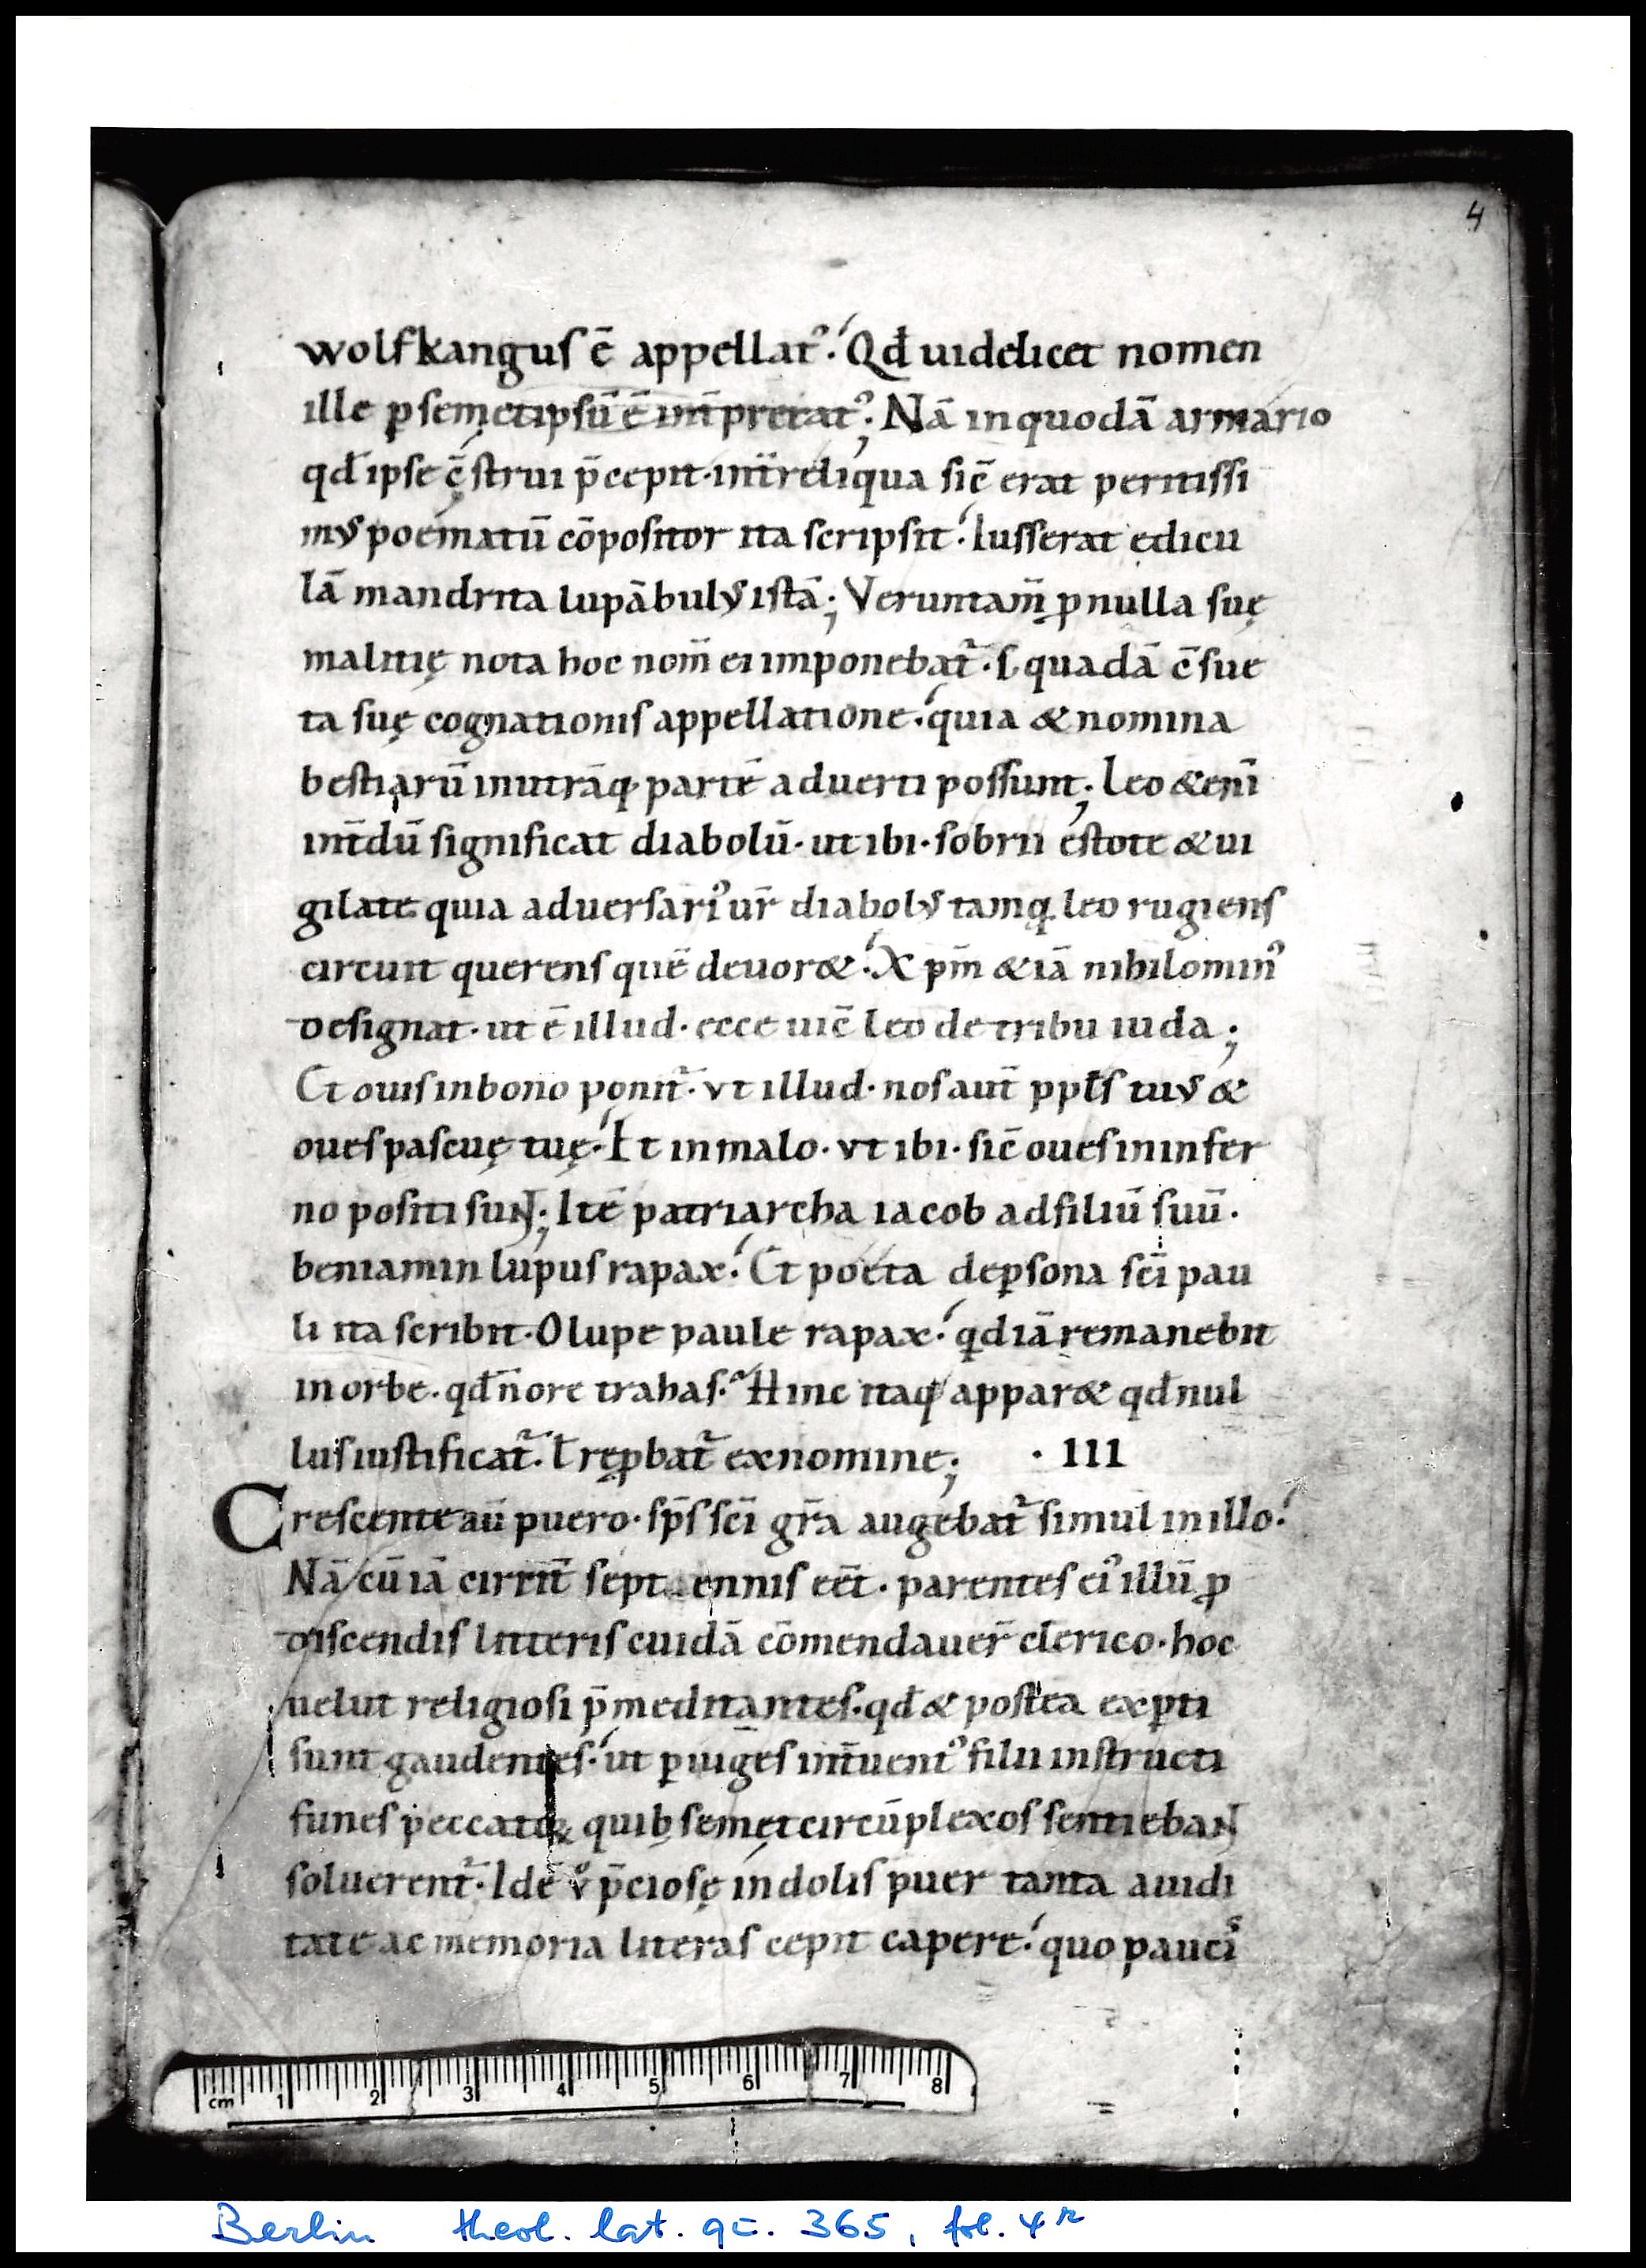 4
wolfkanguſ ē appellatꝰ. Qđ uidelicet nomen
ille ꝑ ſemetipſū ē int̄pretatꝰ; Nā in quodā armario
qđ ipſe ꝯ̄ſtrui p̄cepit · int̄ reliqua ſic̄ erat peritiſſi
mꝰ poematū cōpoſitor ita ſcripſit. Iuſſerat edicu
lā mandrita lupābulꝰ iſtā; Veruntam̄ ꝓ nulla ſuę
malitię nota hoc nom̄ ei imponebat᷑ · ſ quadā c̄ſue
ta ſuę cognationiſ appellatione. quia & nomina
beſtiarū in utrāq; partē aduerti poſſunt; Leo &eni̅
int̄dū ſignificat diabolū · ut ibi · ſobrii eſtote & ui
gilate quia aduerſariꝰ ur̄ diabolꝰ tamq; leo rugienſ
circuit querenſ quē deuor&. X pm̄ &iā nihilominꝰ
deſignat · ut ē illud · ecce uic̄ leo de tribu iuda;
Et ouiſ in bono ponit᷑ · vt illud · noſ aut̄ ppl̄ſ tuꝰ &
oueſ paſcuę tuę. Et in malo · vt ibi · ſic̄ oueſ in infer
no poſiti ſuNt; Itē patriarcha iacob ad filiū ſuū ·
beniamin lupuſ rapax. Et poeta de ꝑſona ſc̄i pau
li ita ſcribit · O lupe paule rapax. qd iā remanebit
in orbe · qđ n̄ ore trahaſ. Hinc itaq; appar& qđ nul
luſ iuſtificat᷑ · ł reꝓbat᷑ ex nomine; · III
Creſcente aū puero · ſp̄ſ ſc̄i gr̄a augebat᷑ ſimul in illo.
Nā cū iā cirrit̄ ſeptuennis eēt · parenteſ eiꝰ illū ꝓ
diſcendiſ litteriſ cuidā cōmendauer̄ clerico · hoc
uelut religioſi p̄meditanteſ · qđ & poſtea exꝑti
ſunt gaudenteſ. ut ꝑ iuḡeſ int̄uentꝰ filii inſtructi
funeſ peccatoꝝ quib; ſemet circūplexoſ ſentiebaNt
ſoluerent᷑ · Idē v̊ p̄cioſę indoliſ puer tanta auidi
tate ac memoria literaſ cepit capere. quo pauciſ
cm 1 2 3 4 5 6 7 8
Berlin theol. lat. qu. 365, fol. 4r